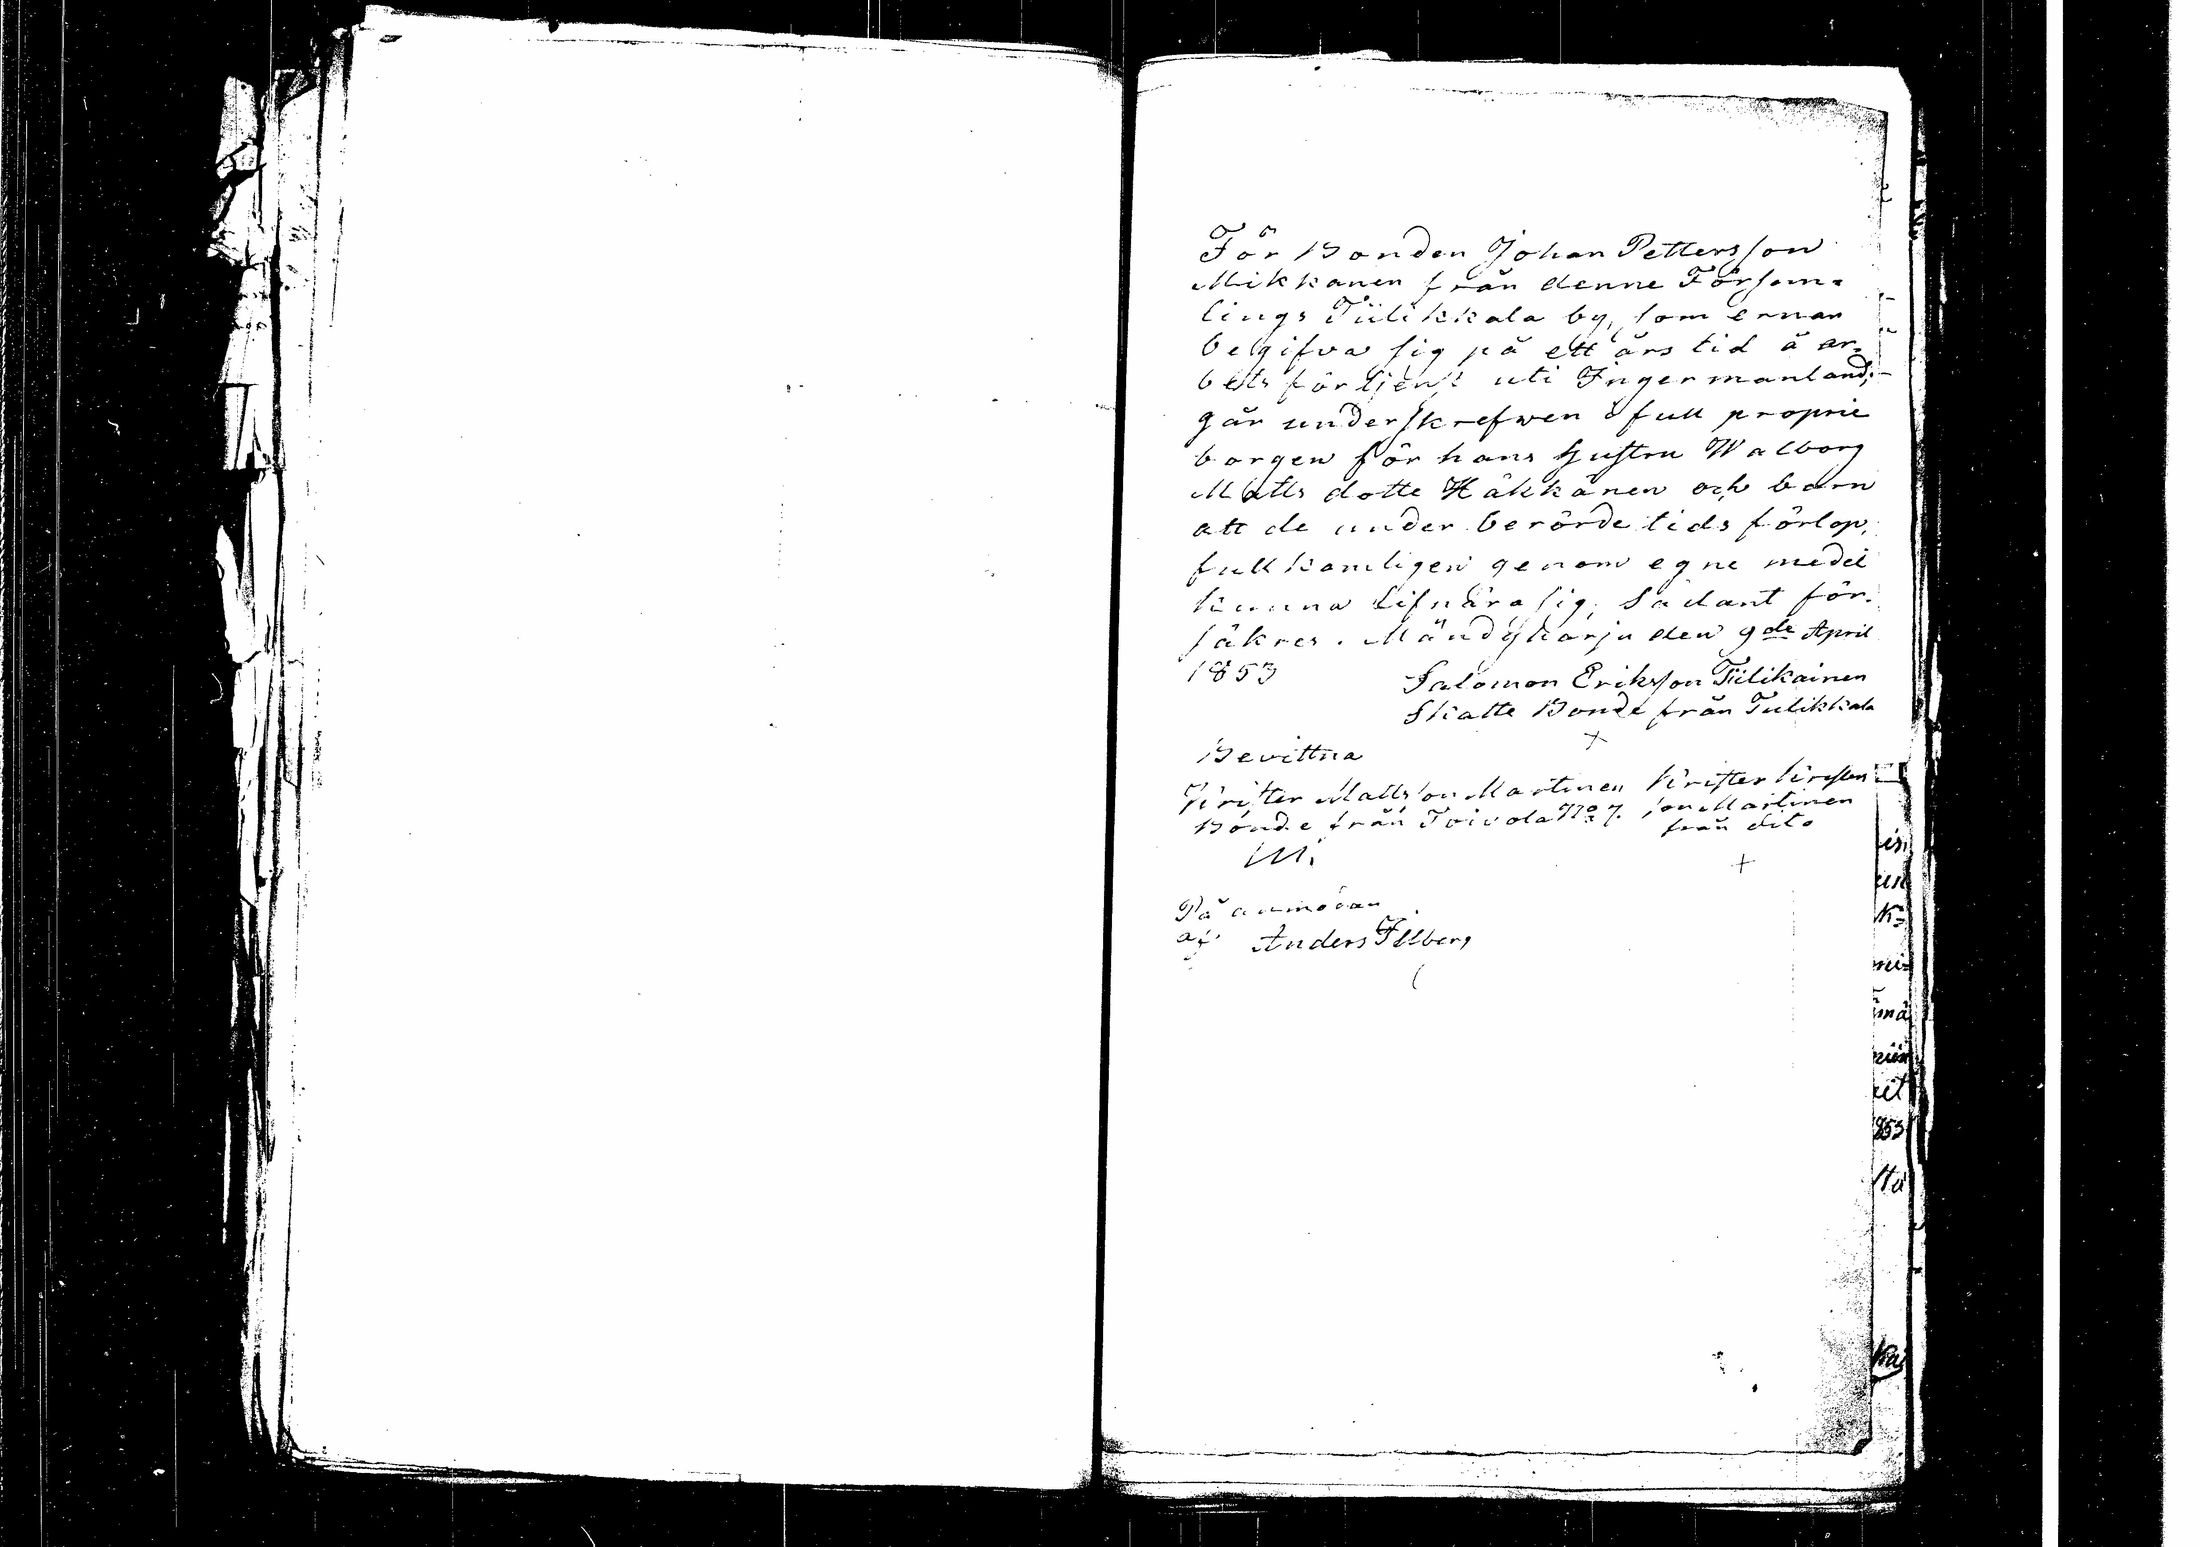 För Bonden Johan Pettersson
Mikkanen från denne Försam=
lings Tiilikkala by, som ernar
begifva sig på ett års tid å ar=
bets förtjenst uti Ingermanland;
går underskrefwen i full proprie
borgen för hans hustru Walborg
Matts dotte Häkkänen och barn
att de under berörde tids förlop,
fullkomligen genom egne medel
kunna lifnära sig, Sådant för=
säkres. Mändyharju den 9de April
1853
Salomon Eriksson Tiilikainen
Skatte Bonde från Tiilikkala
+
Bevittna
Krister Mattsson Martinen
Bonde från Toivola No 7.
M.
Krister Krister
son Martinen
från dito
+
På anmodan
af Anders Illberg
is,
un
k=
mi=
mä
niin
eit
853